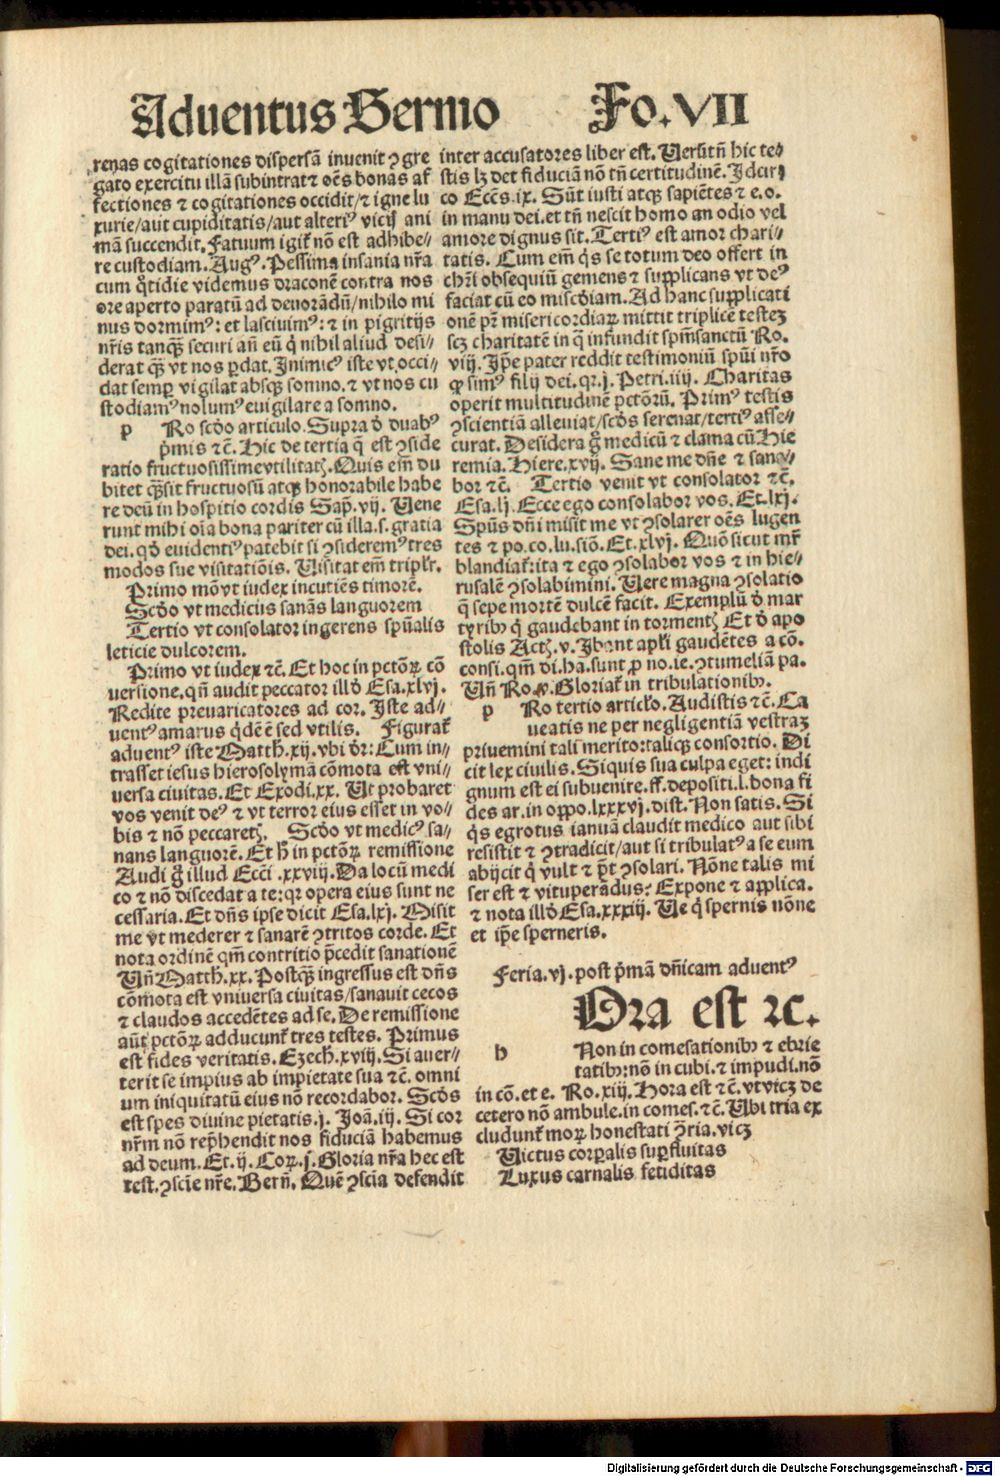 Aduentus Sermo Fo. VII
renas cogitationes dispersã inuenit ꝛ gre
gato exercitu illã subintrat ꝛ oẽs bonas af
fectiones ꝛ cogitationes occidit/ꝛ igne lu
xurie/aut cupiditatis/aut alteriꝰ vicij ani
mã succendit. Fatuum igit̃ nõ est adhibe//
re custodiam. Augꝰ. Pessima insania nr̃a
cum q̃tidie videmus draconẽ contra nos
ore aperto paratũ ad deuorãdũ/nihilo mi
nus dormimꝰ: et lasciuimꝰ: ꝛ in pigritijs
nr̃is tanq̃ꝫ securi añ eũ q̇ nihil aliud desi//
derat q̃ꝫ vt nos ꝑdat. Inimicꝰ iste vt occi//
dat semꝑ vigilat absqꝫ somno. ꝛ vt nos cu
stodiamꝰ nolumꝰ euigilare a somno.
p Ro scd̓o articulo. Supra d̓ duabꝰ
p̃mis ꝛc̃. Hic de tertia q̃ est ꝯside
ratio fructuosissime vtilitatꝭ. Quis em̃ du
bitet q̃ꝫsit fructuosũ atqꝫ honorabile habe
re deũ in hospitio cordis Sap̃. vij. Uene
runt mihi oĩa bona pariter cũ illa. s. gratia
dei. qd̓ euidentiꝰ patebit si ꝯsideremꝰ tres
modos sue visitatiõis. Uisitat em̃ triplr̃.
Primo mõ vt iudex incutiẽs timorẽ.
Scd̓o vt medicus sanãs languorem
Tertio vt consolator ingerens spũalis
leticie dulcorem.
Primo vt iudex ꝛc̃. Et hoc in pctõꝝ cõ
uersione. qñ audit peccator illd̓ Esa. xlvj.
Redite preuaricatores ad cor. Iste ad//
uentꝰ amarus q̇dẽ ẽ sed vtilis. Figurat̃
aduentꝰ iste Matth. xij. vbi dr̃: Cum in//
trasset iesus hierosolymã cõmota est vni//
uersa ciuitas. Et Exodi. xx. Ut probaret
vos venit deꝰ ꝛ vt terror eius esset in vo//
bis ꝛ nõ peccaretꝭ. Scd̓o vt medicꝰ sa//
nans languorẽ. Et h̃ in pctõꝝ remissione
Audi g̃ illud Ecci. xxviij. Da locũ medi
co ꝛ nõ discedat a te: qꝛ opera eius sunt ne
cessaria. Et dñs ipse dicit Esa. lxj. Misit
me vt mederer ꝛ sanarẽ ꝯtritos corde. Et
nota ordinẽ qm̃ contritio p̃cedit sanationẽ
Uñ Matth. xx. Postq̃ꝫ ingressus est dñs
cõmota est vniuersa ciuitas/sanauit cecos
ꝛ claudos accedẽtes ad se. De remissione
aũt pctõꝝ adducunt̃ tres testes. Primus
est fides veritatis. Ezech. xviij. Si auer//
terit se impius ab impietate sua ꝛc̃. omni
um iniquitatũ eius nõ recordabor. Scd̓s
est spes diuine pietatis. j. Joã. iij. Si cor
nr̃m nõ rep̃hendit nos fiduciã habemus
ad deum. Et. ij. Coꝝ. j. Gloria nr̃a hec est
test. ꝯscie nr̃e. Berñ. Quẽ ꝯscia defendit
inter accusatores liber est. Uerũtñ hic te//
stis lꝫ det fiduciã nõ tñ certitudinẽ. Idcir
co Ecc̃s. ix. Sũt iusti atqꝫ sapiẽtes ꝛ e. o.
in manu dei. et tñ nescit homo an odio vel
amore dignus sit. Tertiꝰ est amor chari//
tatis. Cum em̃ q̇s se totum deo offert in
chr̃i obsequiũ gemens ꝛ supplicans vt deꝰ
faciat cũ eo miscd̓iam. Ad hanc supplicati
onẽ pr̃ misericordiaꝝ mittit triplicẽ testeꝫ
scꝫ charitatẽ in q̃ infundit spm̃sanctũ Ro.
viij. Ip̃e pater reddit testimoniũ spũi nr̃o
ꝙ simꝰ filij dei. qꝛ. j. Petri. iiij. Charitas
operit multitudinẽ pctõꝝũ. Primꝰ testis
ꝯscientiã alleuiat/scd̓s serenat/tertiꝰ asse//
curat. Desidera g̃ medicũ ꝛ clama cũ Hie
remia. Hiere. xvij. Sane me dñe ꝛ sana//
bor ꝛc̃. Tertio venit vt consolator ꝛc̃.
Esa. lj. Ecce ego consolabor vos. Et. lxj.
Spũs dñi misit me vt ꝯsolarer oẽs lugen
tes ꝛ po. co. lu. siõ. Et. xlvj. Quõ sicut mr̃
blandiat̃: ita ꝛ ego ꝯsolabor vos ꝛ in hie//
rusalẽ ꝯsolabimini. Uere magna ꝯsolatio
q̃ sepe mortẽ dulcẽ facit. Exemplũ d̓ mar
tyribꝫ q̇ gaudebant in tormentꝭ Et d̓ apo
stolis Actꝭ. v. Ibant apl̃i gaudẽtes a cõ.
consi. qm̃ di. ha. sunt ꝓ no. ie. ꝯtumeliã pa.
Uñ Ro. v. Gloriat̃ in tribulationibꝫ.
p Ro tertio artic̓lo. Audistis ꝛc̃. Ca
ueatis ne per negligentiã vestraꝫ
priuemini tali merito: taliqꝫ consortio. Di
cit lex ciuilis. Siquis sua culpa eget: indi
gnum est ei subuenire. ff. depositi. l. bona fi
des ar. in oppo. lxxxvj. dist. Non satis. Si
q̇s egrotus ianuã claudit medico aut sibi
resistit ꝛ ꝯtradicit/aut si tribulatꝰ a se eum
abijcit q̇ vult ꝛ p̃t ꝯsolari. Nõne talis mi
ser est ꝛ vituperãdus? Expone ꝛ applica.
ꝛ nota illd̓ Esa. xxxiij. Ue q̇ spernis nõne
et ip̃e sperneris.
Feria. vj. post p̃mã dñicam aduentꝰ
Ora est ꝛc.
h Non in comesationibꝫ ꝛ ebrie
tatibꝫ: nõ in cubi. ꝛ impudi. nõ
in cõ. et e. Ro. xiij. Hora est ꝛc̃. vt vicꝫ de
cetero nõ ambule. in comes. ꝛc̃. Ubi tria ex
cludunt̃ moꝝ honestati ꝯ̃ria. vicꝫ
Uictus corꝑalis suꝑfluitas
Luxus carnalis fetiditas
Digitalisierung gefördert durch die Deutsche Forschungsgemeinschaft - DFG